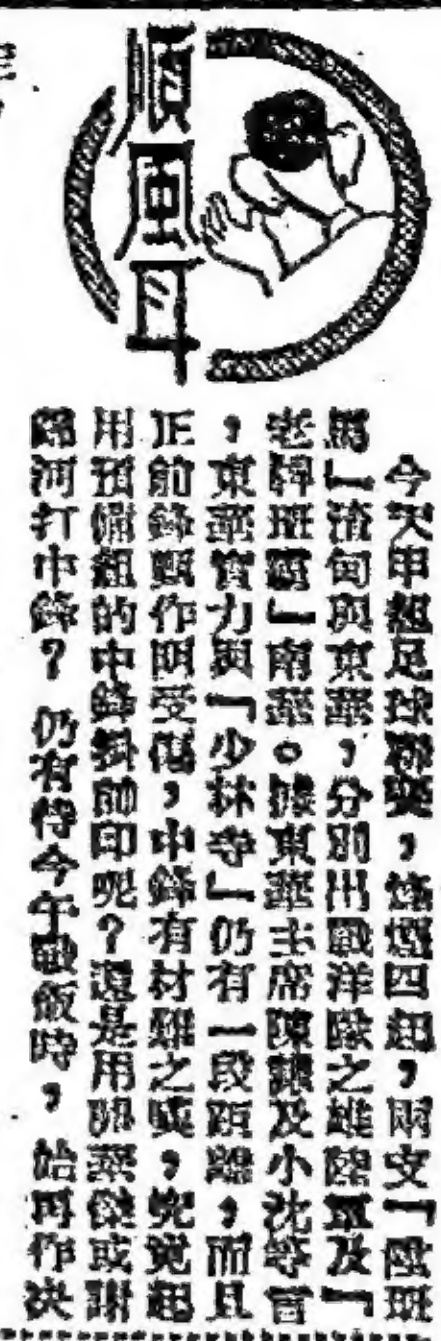 順風耳
今天甲組足球聯賽，烽煙四起，兩支『歐班
馬』流甸與東華，分別出戰洋隊之雄陸軍及『
老牌班霸』南華。據東華主席陳謙及小沈等言
，東華實力與『少林寺』仍有一段距離，而且
正前鋒甄作明受傷，中鋒有材難之嘆，究竟起
用預備組的中鋒掛帥印呢？還是用郭榮傑或謝
錦河打中鋒？　仍有待今午歎飯時，始再作決